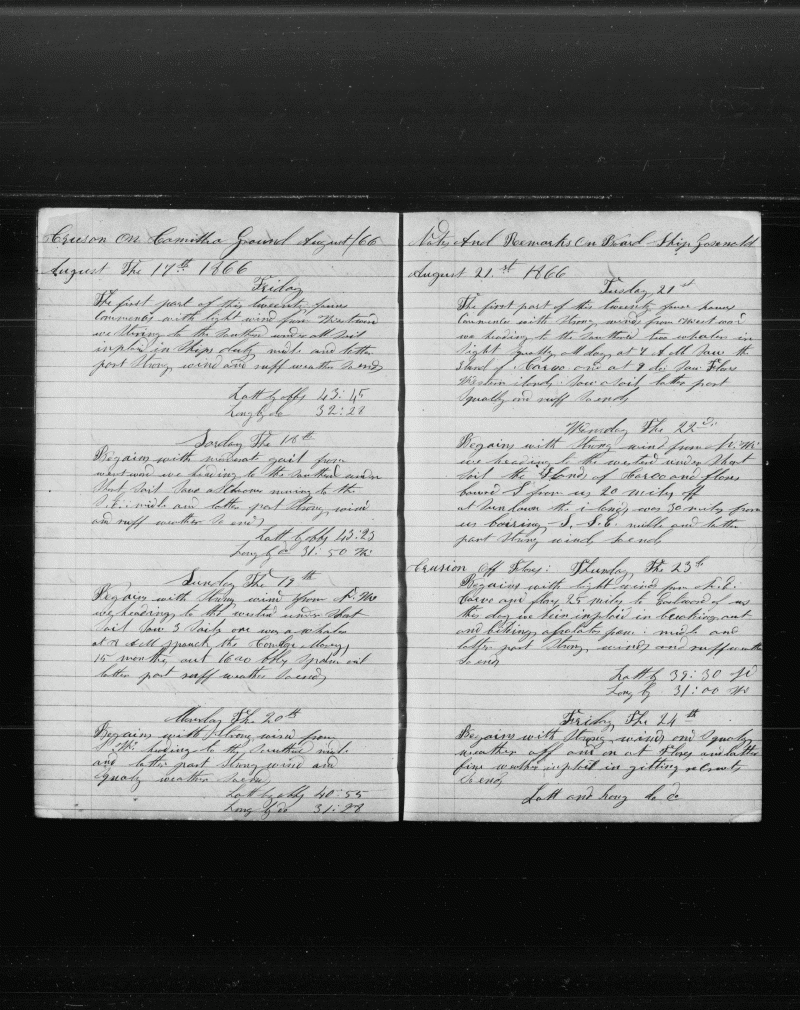 Cruson On Camilla Ground August/66
August The 17th 1866
Friday
The first part of this twenty four
Comments with light wind from Westward
we stering to the Southard under all sail
inploid in Ships duty midle and latter
part Strong wind and ruff weather So ends
Latt by obbs 43:45
Long by do 32:28
Sarday The 18th
Begains with moderat gail from
westward we heading to the Southard under
Short Sail Saw a Schooner runing to the
S.E. midle and latter part Strong wind
and ruff weather So ends
Latt by obbs 43:23
Long by do 31:50 W:
Sunday The 19th
Begains with Strong wind from N. W
we heading to the westard under Short
Sail Saw 3 Sails one was a whaler
at 7 A M Spanck the
15 months out 1640 bbls Sperm oil
latter part ruff weather So ends
Monday The 20th
Begains with Strong wind from
W: heading to the Southard midle
and latter part Strong wind and
Squaly weather So ends
Latt by obbs 40:55
Long by do 31:28
Notes And Remarks On Board Ship Gosnold
August 21st 1866
Tuesday 21st
The first part of this twenty four hours
Comments with Strong wind from Westward
we heading to the Southard two whalers in
Sight Squaly all day at 7 A M Saw the
Iland of Corvo and at 9 do Saw Flors
Western ilands Saw a Sail latter part
Squaly and ruff So ends
Wensday The 22nd
Begains with Strong wind from N. W:
we heading to the westard under Short
Sail the Ilands of Corvo and flores
bared S from us 20 miles off
at Sun down the ilands was 30 miles from
us bairing S, S. E. midle and latter
part Strong winds So ends
Crusion Off Flores: Thursday The 23th
Begains with light winds from N. E.
Corvo and flors 25 miles to Eastward of us
this day in bein inploid in breaking out
and latter part Strong winds and ruff weather
So ends
Latt by 39:30 N
Long by 31:00 W
Friday The 24th
Begains with Strong wind and Squaly
weather off and on at Flores and latter
fine weather inploid in gitting recruits
So ends
Latt and Long do do